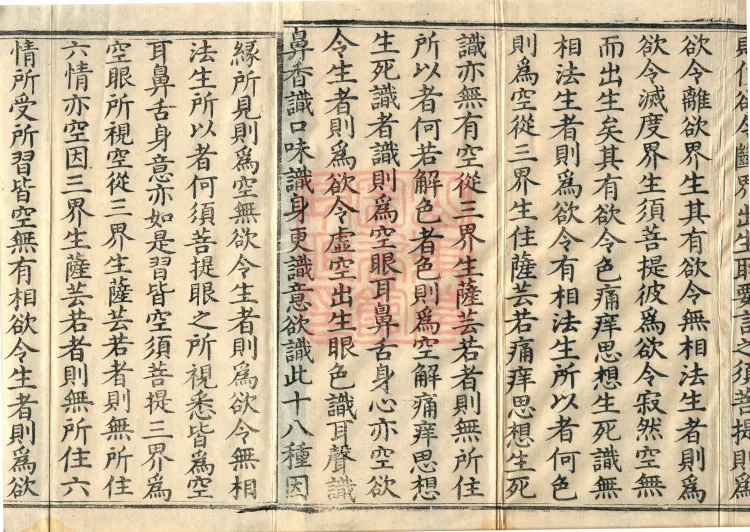 界出生取要言之須菩提則爲
欲令離欲界生其有欲令無相法生者則爲
欲令滅度界生須菩提彼爲欲令寂然空無
而出生矣其有欲令色痛痒思想生死識無
相法生者則爲欲令有相法生所以者何色
則爲空從三界生住薩芸若痛痒思想生死
識亦無有空從三界生薩芸若者則無所住
所以者何若解色者色則爲空解痛痒思想
生死識者識則爲空眼耳鼻舌身心亦空欲
令生者則爲欲令虛空出生眼色識耳聲識
鼻香識口味識身更識意欲識此十八種因
緣所見則爲空無欲令生者則爲欲令無相
法生所以者何須菩提眼之所視悉皆爲空
耳鼻舌身意亦如是習皆空須菩提三界爲
空眼所視空從三界生薩芸若者則無所住
六情亦空因三界生薩芸若者則無所住六
情所受所習皆空無有相欲令生者則爲欲